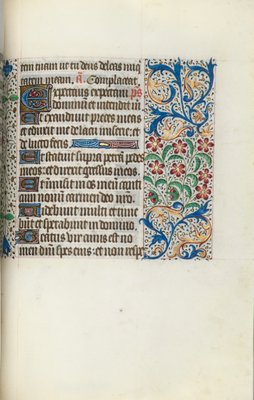 tem meam ut eu deus deleas miq
tatem meam. A. Complaceat
Expectans expectaui ps
dominum et intendit m
Et exaudiuit preces meas
et eduxit me de lacu miserie: et
de luto fecis
Et statuit supra petra pedes
meos: et direxit gressus meos.
Et inmisit in os meum canti
cum nouum carmen deo nro
Videbunt multi et time
bunt: et sperabunt in domino.
Beatus vir cuius est no
men dni spes eius: et non respe